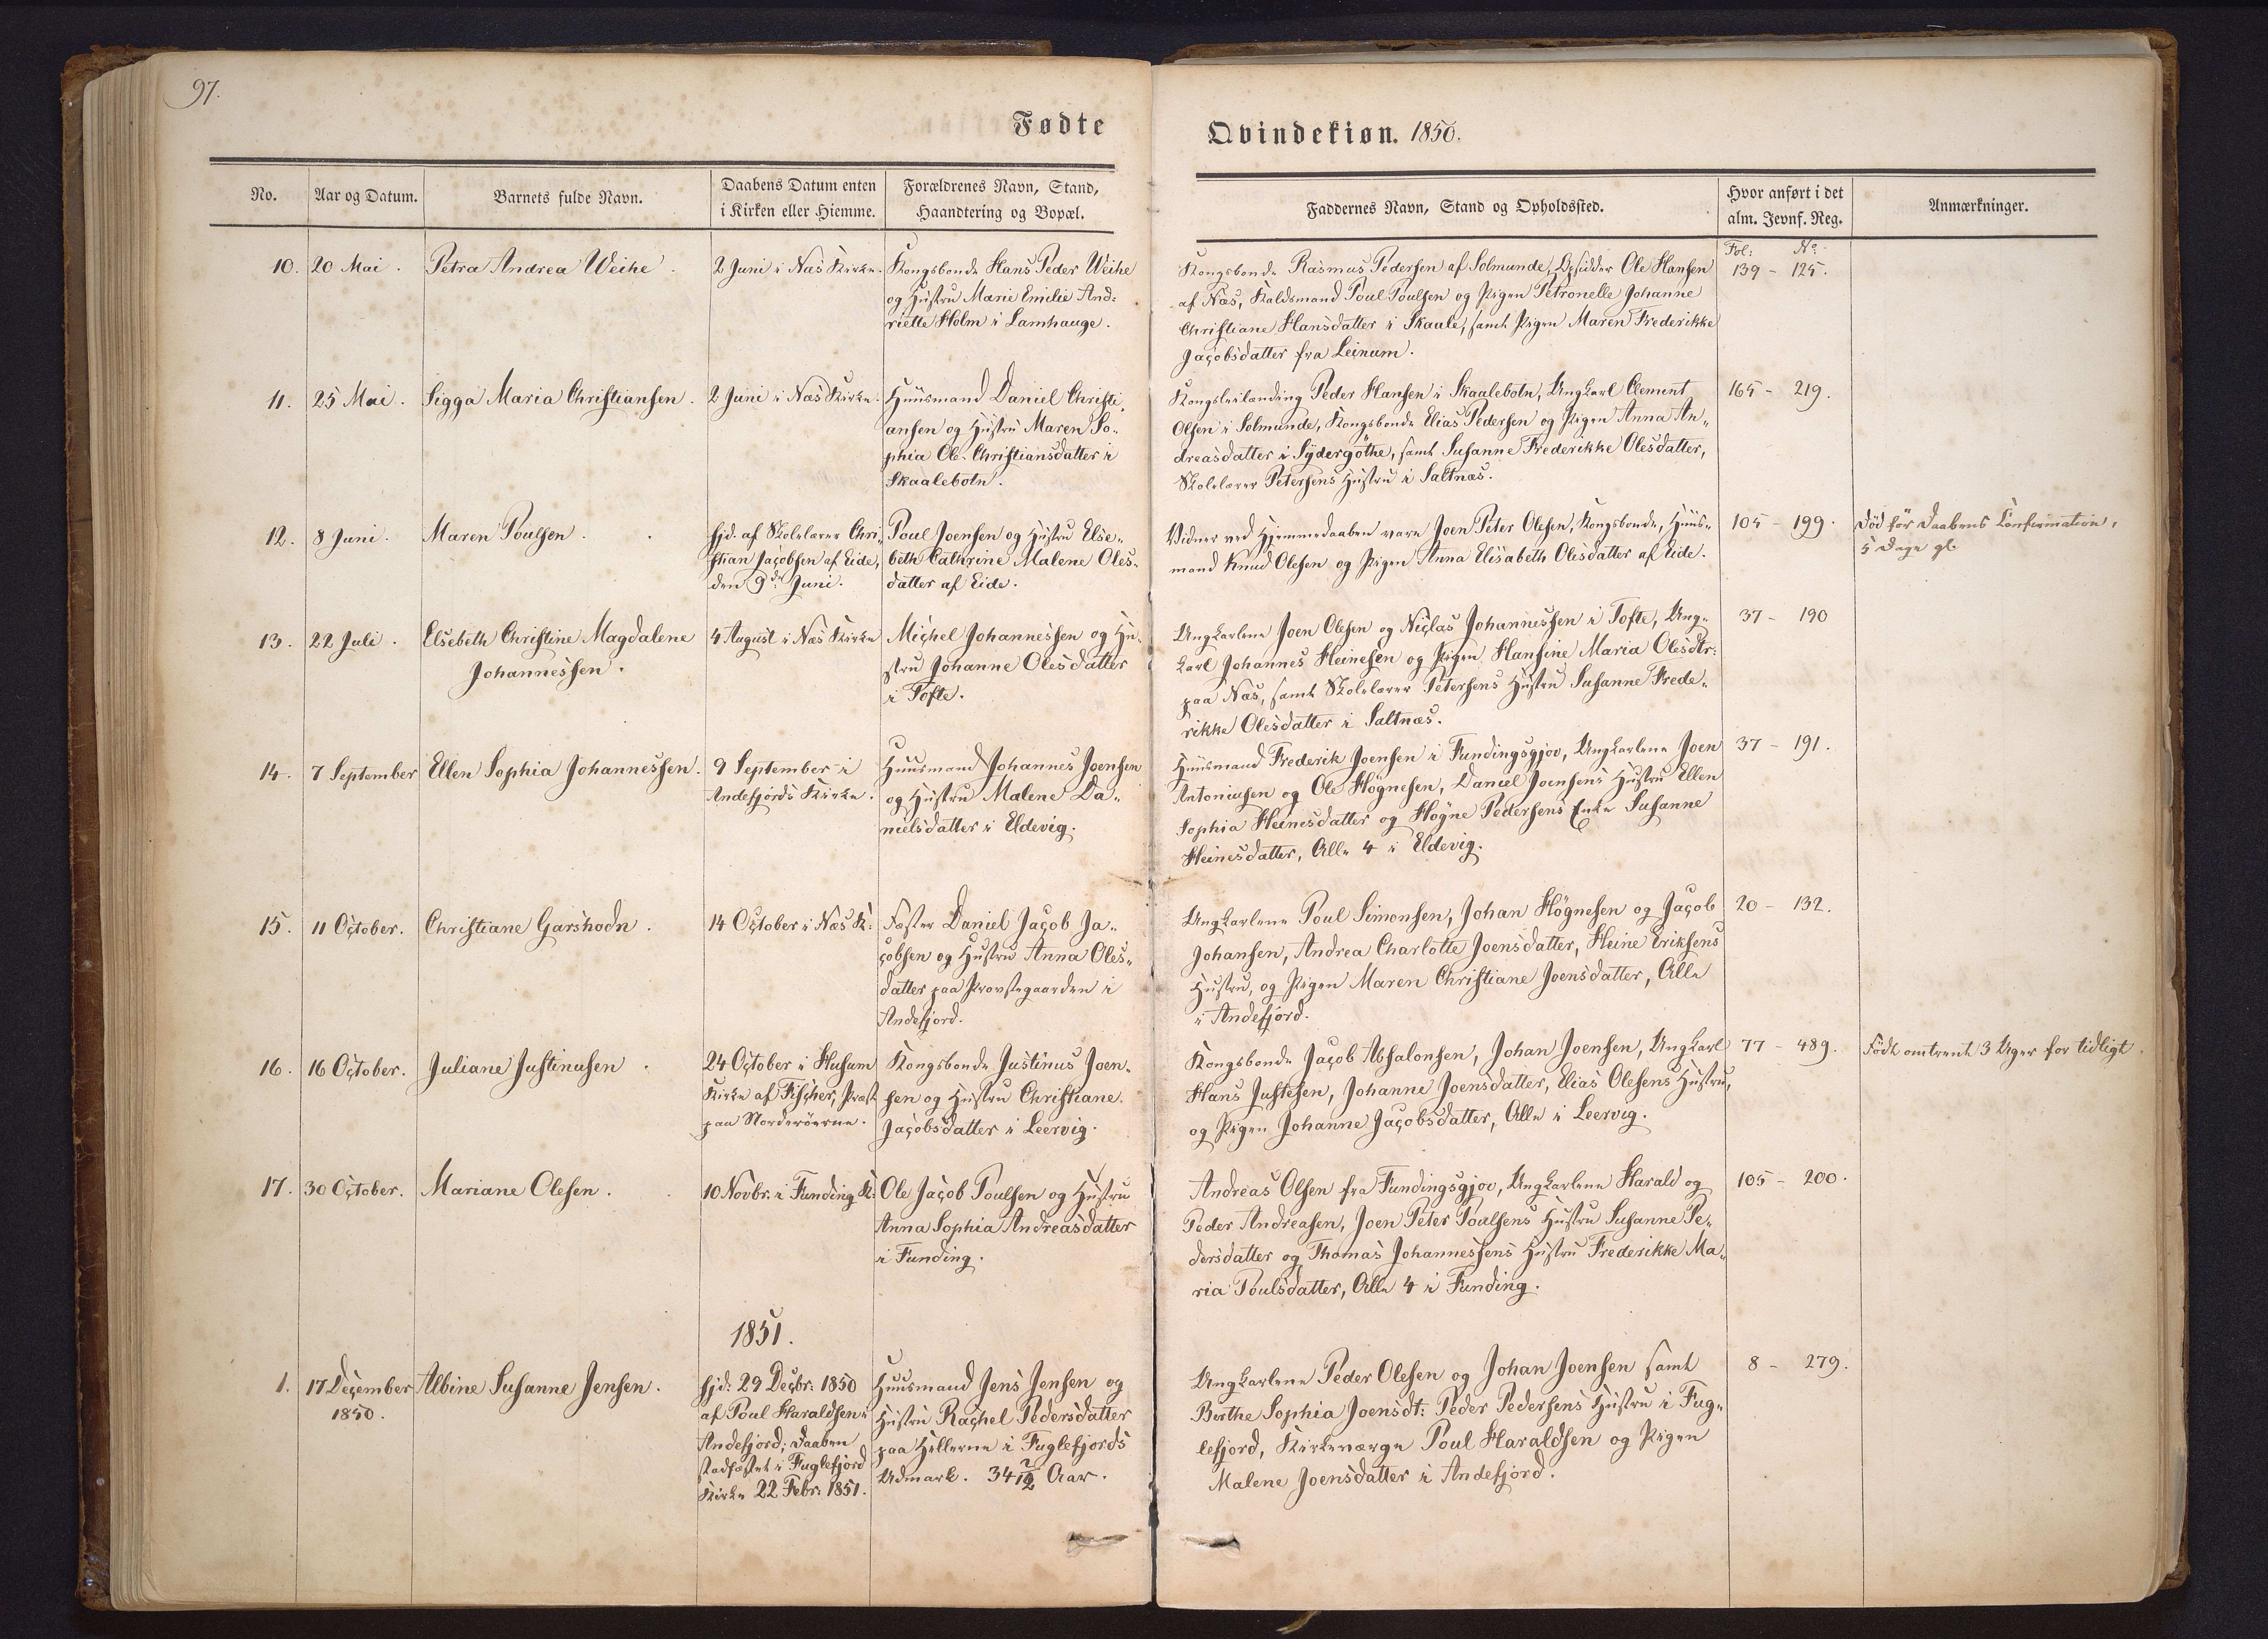 97.
Fødte
Qvindekiøn. 1850.
No.
Aar og Datum.
Barnets fulde Navn.
Daabens Datum enten
i Kirken eller Hiemme.
Forældrenes Navn, Stand,
Haandtering og Bopæl.
Faddernes Navn, Stand og Opholdssted.
Hvor anført i det
alm. Jevnf. Reg.
Anmærkninger.
Fol: No.
10.
20 Mai.
Petra Andrea Weihe.
2 Juni i Næs Kirke.
Kongsbonde Hans Peder Weihe
og Hustru Marie Emilie And-
riette Holm i Lamhauge.
Kongsbonde Rasmus Pedersen af Solmunde, Opsidder Ole Hansen
af Næs, Kaldsmand Poul Poulsen og Pigen Petronelle Johanne
Christiane Hansdatter i Skaale, samt Pigen Maren Frederikke
Jacobsdatter fra Leinum.
139 - 125.
11.
25 Mai.
Sigga Maria Christiansen.
2 Juni i Næs Kirke.
Huusmand Daniel Christi-
ansen og Hustru Maren So-
phia Ole-Christiansdatter i
Skaalebotn.
Kongsleilænding Peder Hansen i Skaalebotn, Ungkarl Clement
Olsen i Solmunde, Kongsbonde Elias Pedersen og Pigen Anna An-
dreasdatter i Sydergöthe, samt Susanne Frederikke Olesdatter,
Skolelærer Petersens Hustru i Saltnæs.
165 - 219.
12.
8 Juni.
Maren Poulsen.
hjd. af Skolelærer Chri-
stian Jacobsen af Eide,
den 9de Juni.
Poul Joensen og Hustru Else-
beth Cathrine Malene Oles-
datter af Eide.
Vidner ved Hjemmedaaben vare Joen Peter Olesen, Kongsbonde, Huus-
mand Knud Olesen og Pigen Anna Elisabeth Olesdatter af Eide.
105 - 199.
Död för Daabens Confirmation,
5 Dage gl.
13.
22 Juli.
Elsebeth Christine Magdalene
Johannessen.
4 August i Næs Kirke
Michel Johannessen og Hu-
stru Johanne Olesdatter
i Tofte.
Ungkarlene Joen Olesen og Niclas Johannessen i Tofte, Ung-
karl Johannes Heinesen og Pigen Hansine Maria Olesdtr:
paa Næs, samt Skolelærer Petersens Hustru Susanne Frede-
rikke Olesdatter i Saltnæs.
37 - 190
14.
7 September
Ellen Sophia Johannessen.
9 September i
Andefjords Kirke.
Huusmand Johannes Joensen
og Hustru Malene Da-
nielsdatter i Eldevig.
Huusmand Frederik Joensen i Fundingsgjov, Ungkarlene Joen
Antoniusen og Ole Högnesen, Daniel Joensens Hustru Ellen
Sophia Heinesdatter og Högne Pedersens Enke Susanne
Heinesdatter, Alle 4 i Eldevig.
37 - 191.
15.
11 October.
Christiane Garshodn.
14 October i Næs K:
Fæster Daniel Jacob Ja-
cobsen og Hustru Anna Oles-
datter paa Provstegaarden i
Andefjord.
Ungkarlene Poul Simonsen, Johan Högnesen og Jacob
Johansen, Andrea Charlotte Joensdatter, Heine Eriksens
Hustru, og Pigen Maren Christiane Joensdatter, Alle
i Andefjord.
20 - 132.
16.
16 October.
Juliane Justinusen.
24 October i Husum
Kirke af Fischer, Præst
paa Norderöerne.
Kongsbonde Justinus Joen-
sen og Hustru Christiane
Jacobsdatter i Leervig.
Kongsbonde Jacob Absalonsen, Johan Joensen, Ungkarl
Hans Justesen, Johanne Joensdatter, Elias Olesens Hustru,
og Pigen Johanne Jacobsdatter, Alle i Leervig.
77 - 489.
Födt omtrent 3 Uger for tidligt.
17.
30 October.
Mariane Olesen.
10 Novbr. i Funding K:
Ole Jacob Poulsen og Hustru
Anna Sophia Andreasdatter
i Funding.
Andreas Olsen fra Fundingsgjov, Ungkarlene Harald og
Peder Andreasen, Joen Peter Poulsens Hustru Susanne Pe-
dersdatter og Thomas Johannessens Hustru Frederikke Ma-
ria Poulsdatter, Alle 4 i Funding.
105 - 200.
1851.
1.
17 December
1850.
Albine Susanne Jensen.
hjd: 29 Decbr: 1850
af Poul Haraldsen i
Andefjord; Daaben
stadfæstet i Fuglefjord
Kirke 22 Febr: 1851.
Huusmand Jens Jensen og
Hustru Rachel Pedersdatter
paa Hellerne i Fuglefjords
Udmark. 34 7/12 Aar.
Ungkarlene Peder Olesen og Johan Joensen samt
Berthe Sophia Joensdt: Peder Pedersens Hustru i Fug-
lefjord, Kirkeværge Poul Haraldsen og Pigen
Malene Joensdatter i Andefjord.
8 - 279.